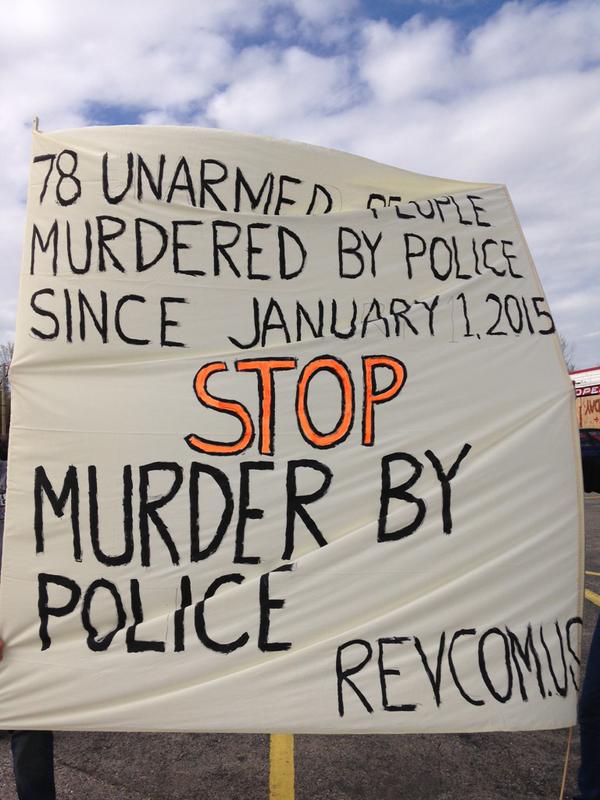 78 UNARMED PEOPLE
MURDERED BY POLICE
SINCE JANUARY 1, 2015
STOP
MURDER BY
POLICE
REVCOM.US
OPE